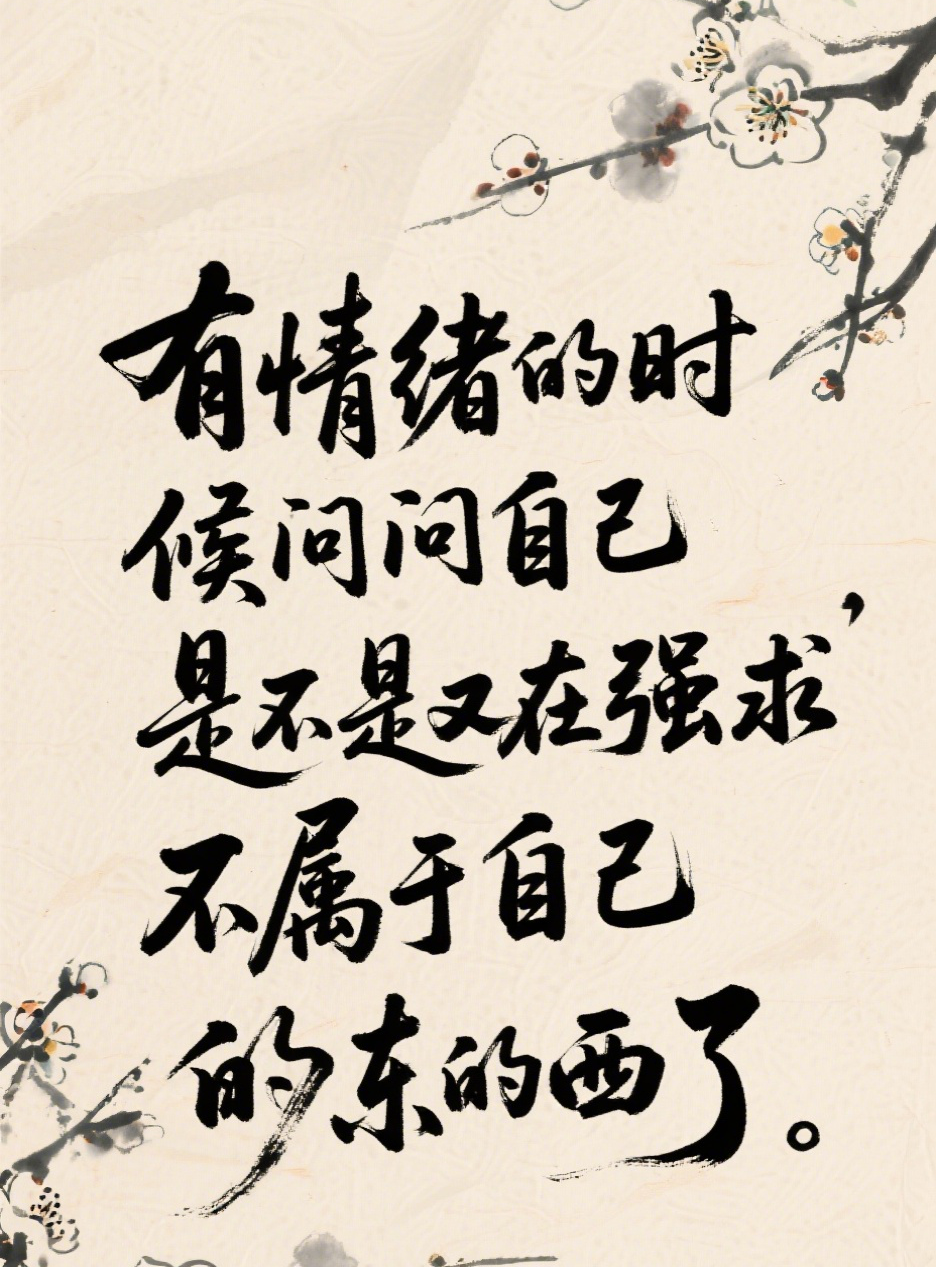 有情绪的时
候问问自己
是不是又在强求,
不属于自己
的东的西了。